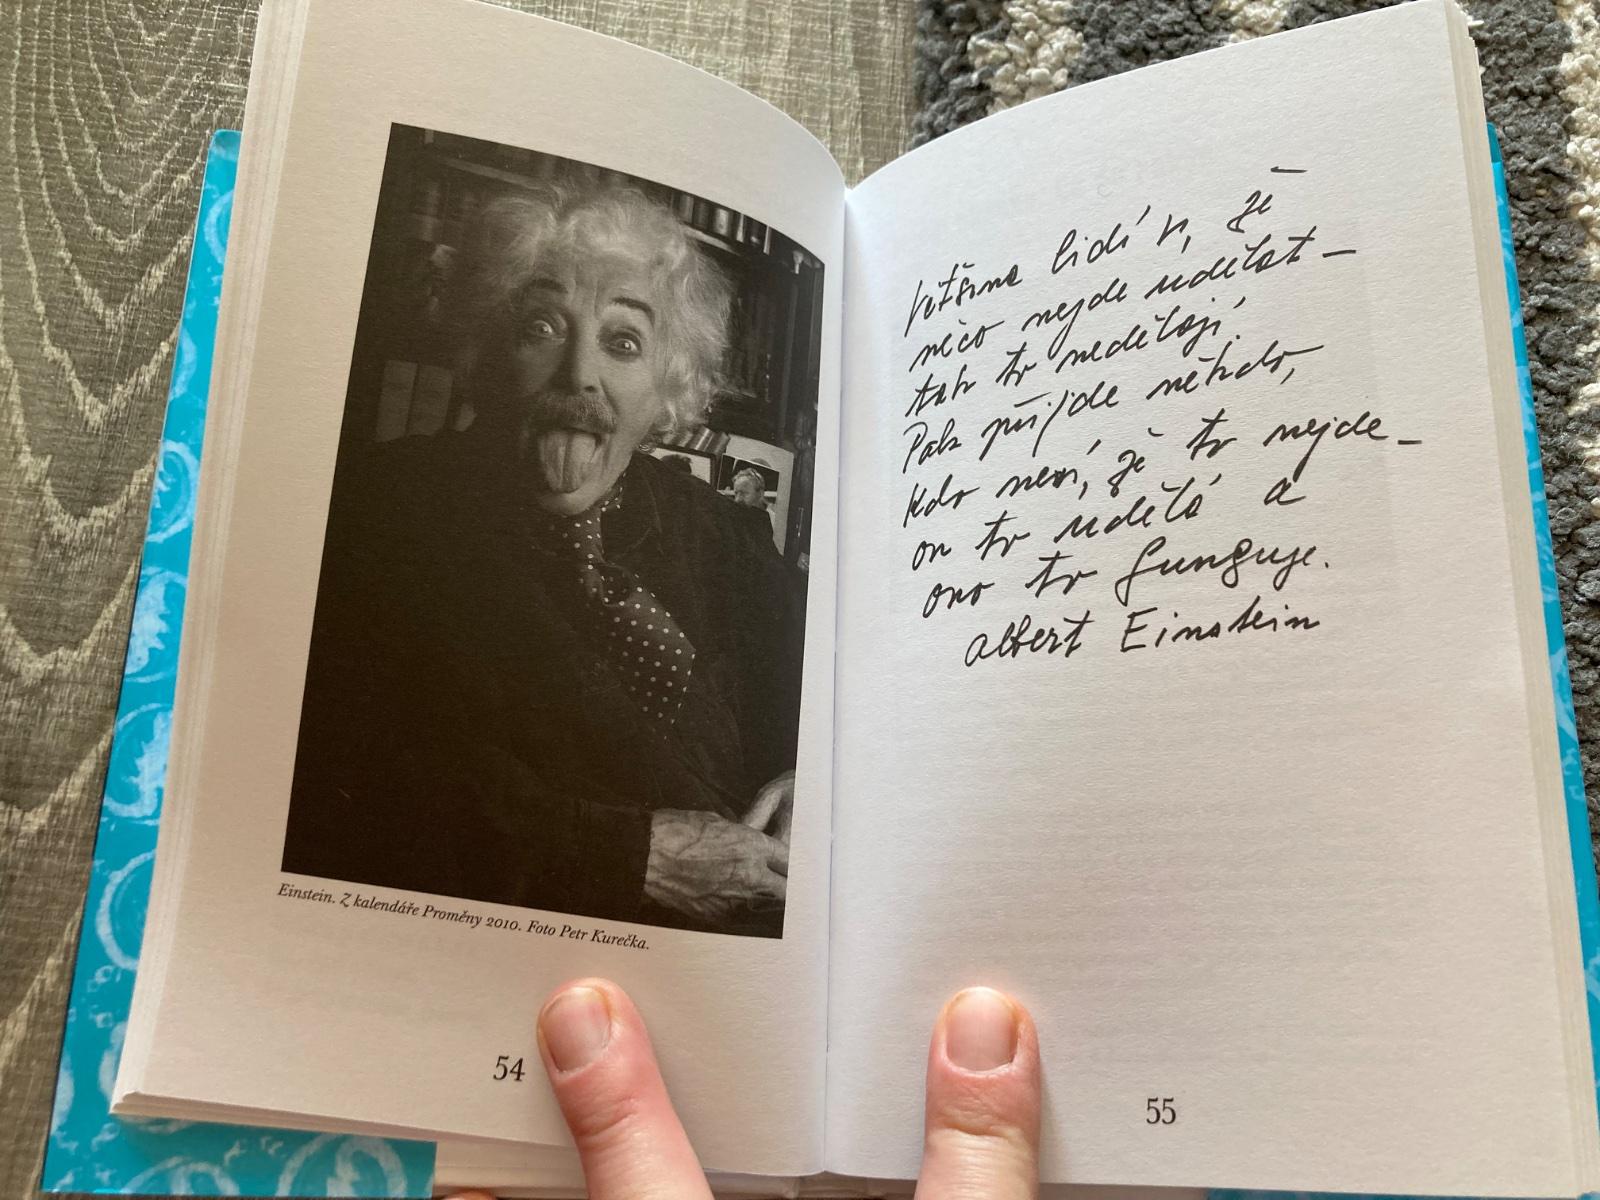 Einstein. Z kalendáře Proměny 2010. Foto Petr Kurečka.
54
Většina lidí ví, že
něco nejde udělat –
tak to nedělají.
Pak přijde někdo,
kdo neví, že to nejde –
on to udělá a
ono to funguje.
Albert Einstein
55